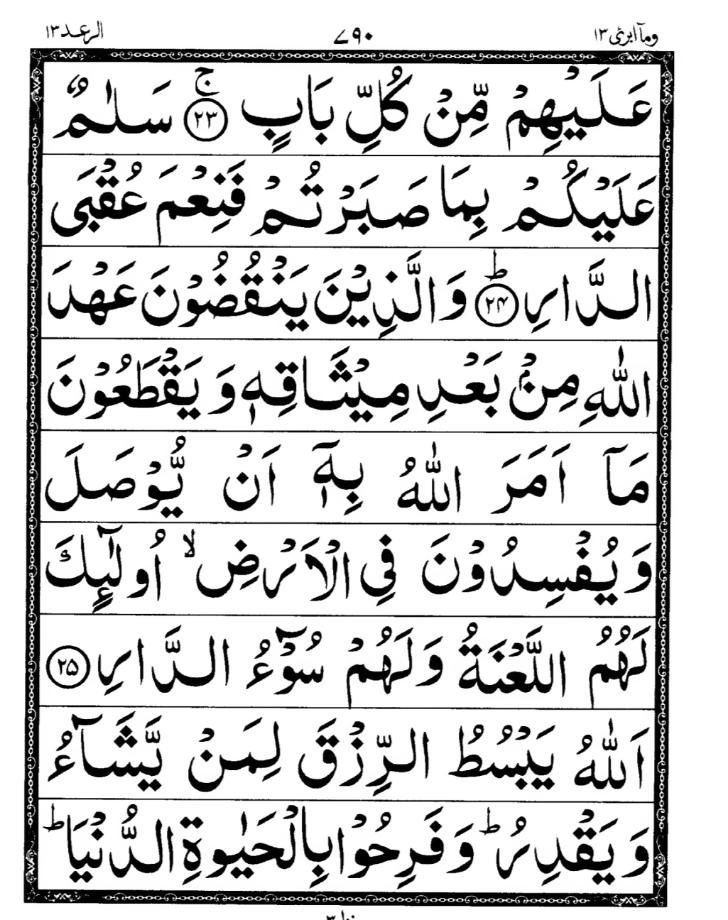 الرعد ١٣ ٧٩٠ ومآ ابرئ ١٣
عَلَيْهِمْ مِّنْ كُلِّ بَابٍ ۚ ﴿۲۳﴾ سَلٰمٌ
عَلَيْكُمْ بِمَا صَبَرْتُمْ فَنِعْمَ عُقْبَى
الدَّارِ ؕ ﴿۲۴﴾ وَالَّذِيْنَ يَنْقُضُوْنَ عَهْدَ
اللّٰهِ مِنْۢ بَعْدِ مِيْثَاقِهٖ وَ يَقْطَعُوْنَ
مَاۤ اَمَرَ اللّٰهُ بِهٖۤ اَنْ يُّوْصَلَ
وَيُفْسِدُوْنَ فِي الْاَرْضِ ۙ اُولٰٓئِكَ
لَهُمُ اللَّعْنَةُ وَلَهُمْ سُوْٓءُ الدَّارِ ﴿۲۵﴾
اَللّٰهُ يَبْسُطُ الرِّزْقَ لِمَنْ يَّشَآءُ
وَ يَقْدِرُ ؕ وَفَرِحُوْا بِالْحَيٰوةِ الدُّنْيَا ؕ